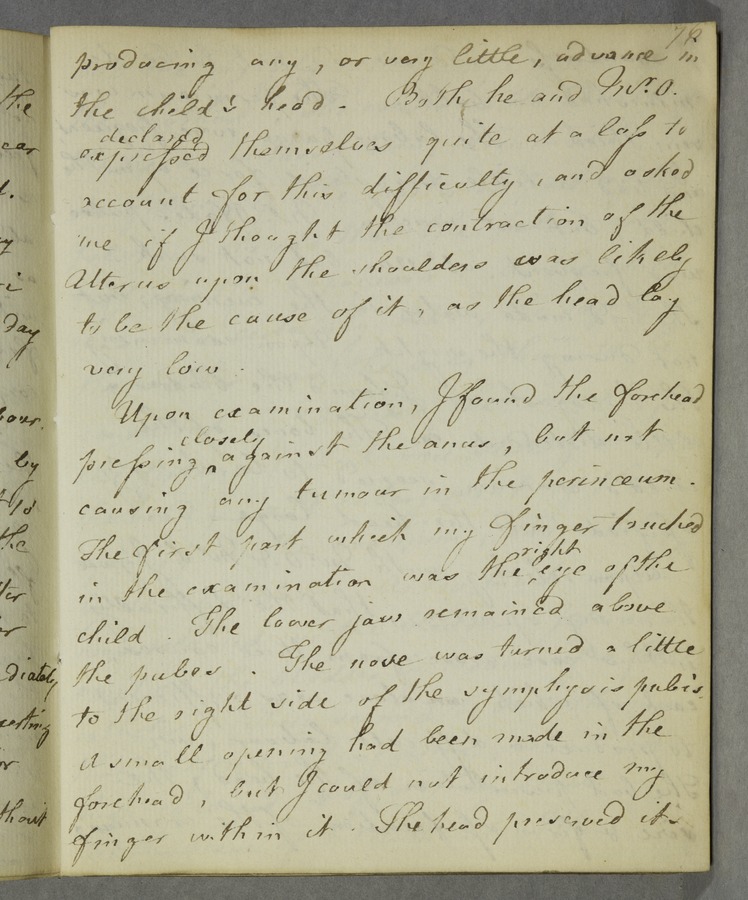 72
producing any, or very little, advance in
the child's head. Both he and Mr. O.
declared
expressed themselves quite at a loss to
account for this difficulty, and asked
me if I thought the contraction of the
Uterus upon the shoulders was likely
to be the cause of it, as the head lay
very low.
Upon examination, I found the forehead
closely
pressing ^ against the anus, but not
causing any tumour in the perinæum.
The first part which my finger touched
right
in the examination was the ^ eye of the
child. The lower jaw remained above
the pubes. The nose was turned a little
to the right side of the symphysis pubis.
A small opening had been made in the
forehead, but I could not introduce my
finger within it. The head preserved its
the
ear
day
hour.
by
the
diately
thout